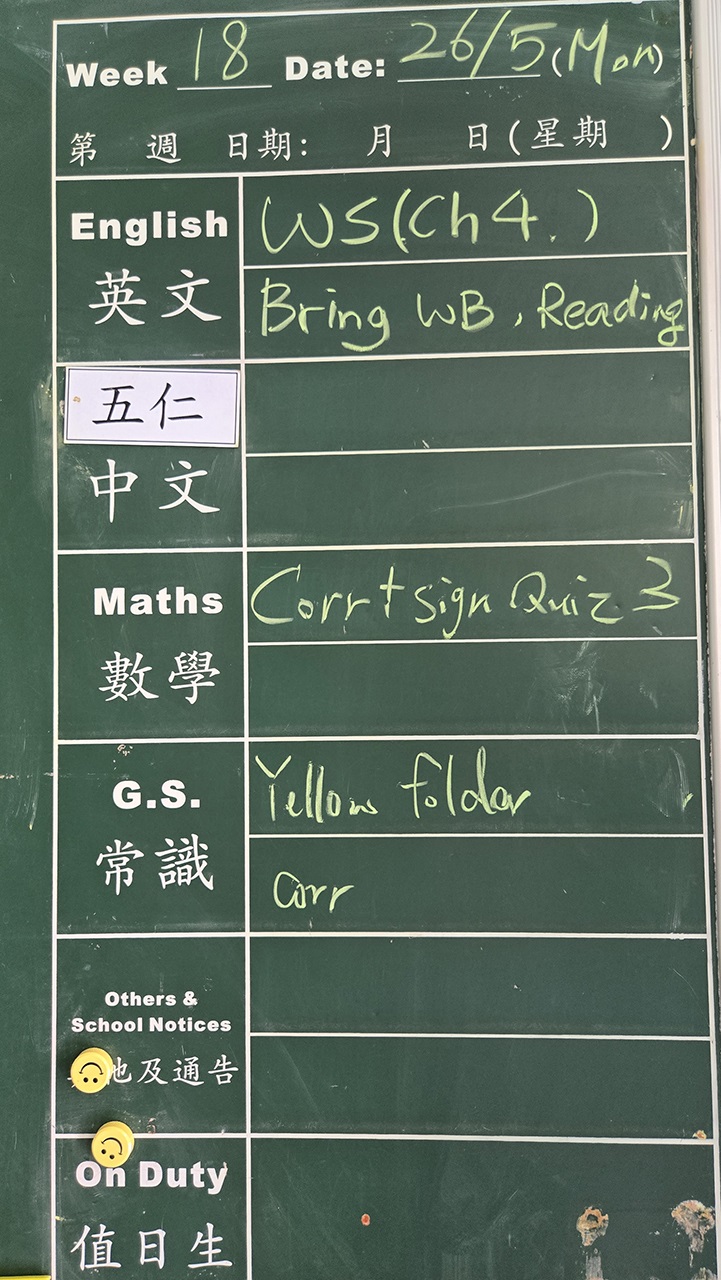 Week 18 Date: 26/5 (Mon)
第 週 日期: 月 日(星期 )
English WS(Ch 4.)
英文 Bring WB, Reading
五仁
中文
Maths Corr + sign Quiz 3
數學
G.S. Yellow folder
常識 Corr
Others &
School Notices
他及通告
On Duty
值日生